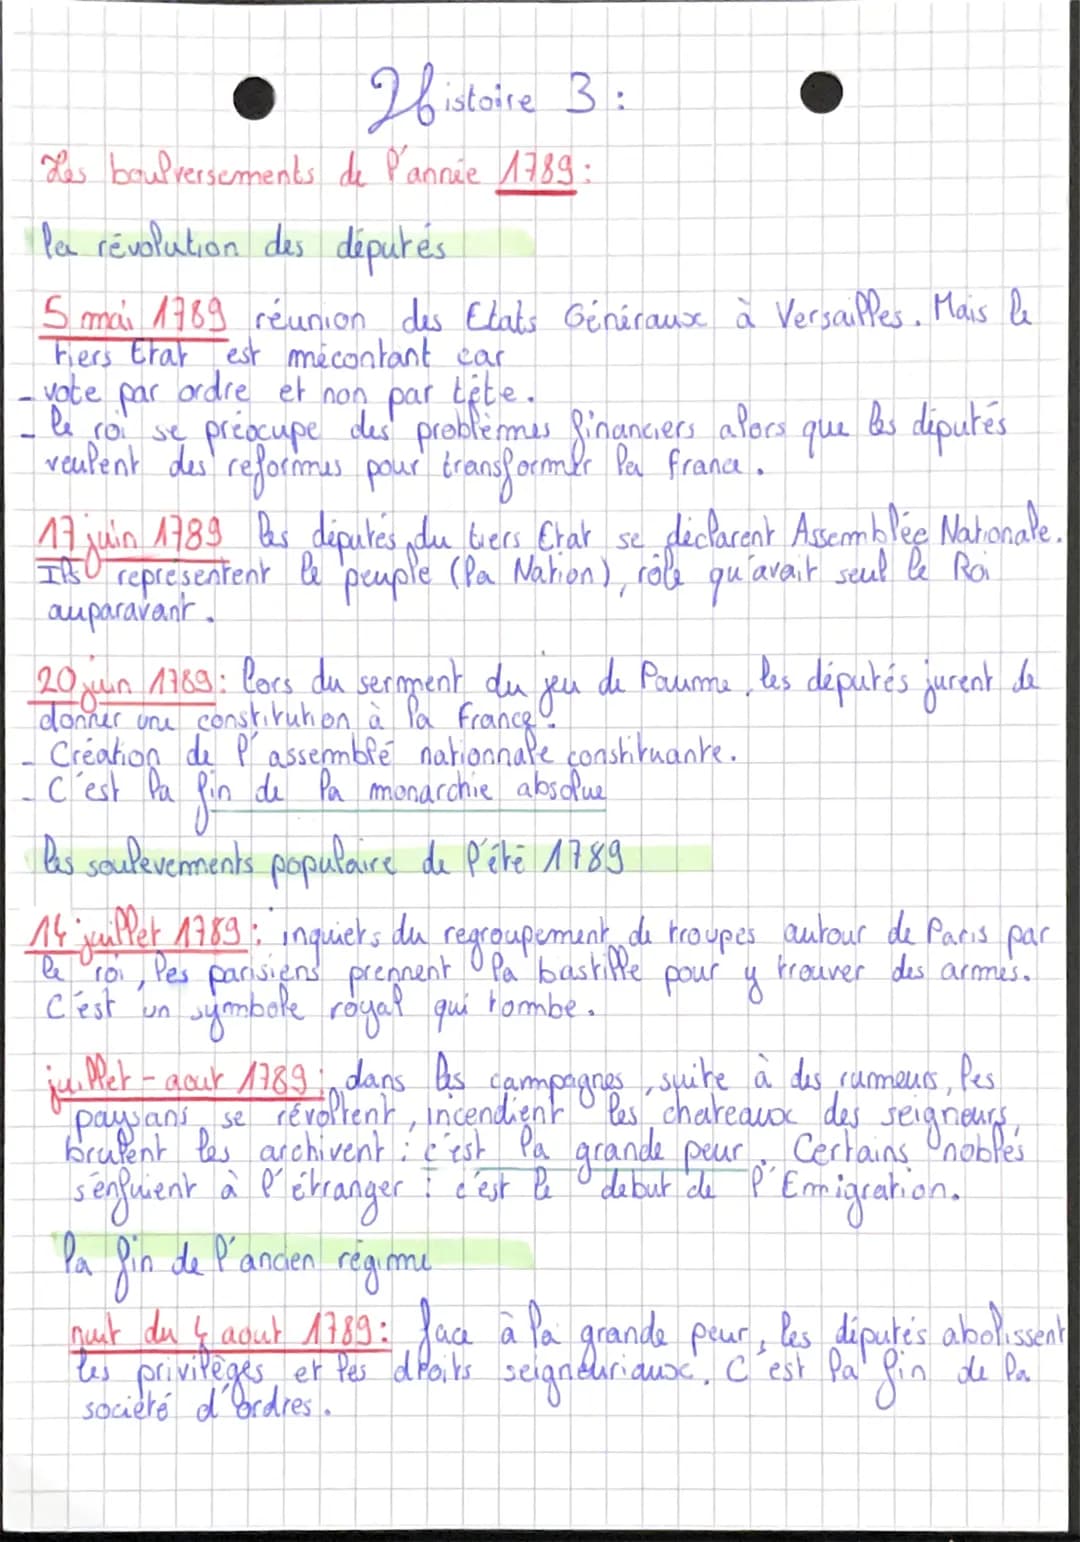 Histoire 3 :
Les boulversements de l'année 1789 :
la révolution des députés
5 mai 1789 réunion des Etats Généraux à Versailles. Mais le
tiers Etat est mécontant car
- vote par ordre et non par tête.
- le roi se préocupe des problèmes financiers alors que les députés
veulent des reformes pour transformer la france.
17 juin 1789 les députés du tiers Etat se déclarent Assemblée Nationale.
Ils représentent le peuple (la Nation), rôle qu'avait seul le Roi
auparavant.
20 juin 1789 : lors du serment du jeu de Paume, les députés jurent de
donner une constitution à la France.
- Création de l'assemblé nationnale constituante.
- C'est la fin de la monarchie absolue
les soulevements populaire de l'été 1789
14 juillet 1789 : inquiets du regroupement de troupes autour de Paris par
le roi, les parisiens prennent la bastille pour y trouver des armes.
C'est un symbole royal qui tombe.
juillet - aout 1789 : dans les campagnes, suite à des rumeurs, les
paysans se révoltent, incendient les chateaux des seigneurs,
brulent les archivent : c'est la grande peur. Certains nobles
s'enfuient à l'étranger : c'est le debut de l'Emigration.
la fin de l'ancien régime
nuit du 4 aout 1789 : face à la grande peur, les députés abolissent
les privilèges et les droits seigneuriaux. C'est la fin de la
société d'ordres.